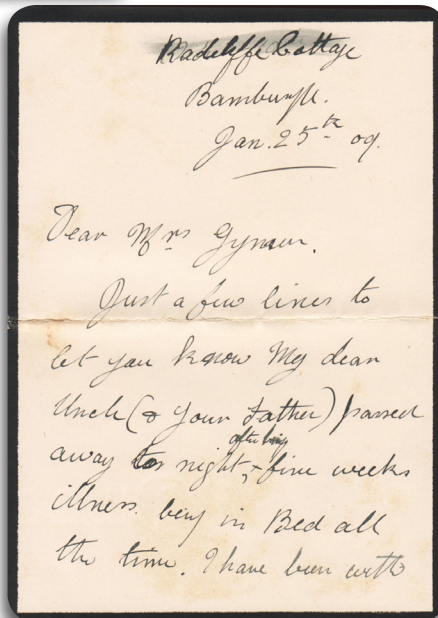 Radcliffe Cottage
Bamburgh.
Jan. 25th 09.
Dear Mrs Gymer.
Just a few lines to
let you know My dear
Uncle (& your Father) passed
away to night, after five weeks
illness. being in Bed all
the time. I have been with